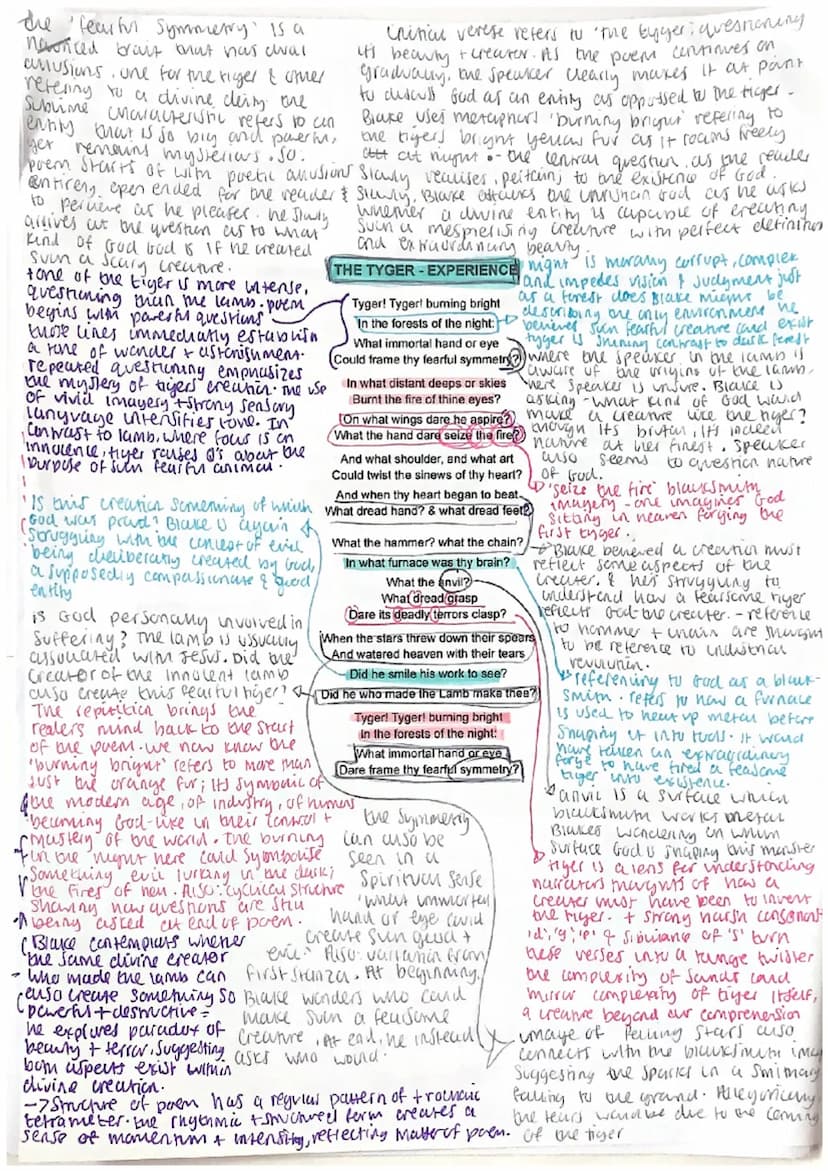 the 'fearful symmetry' is a
nuanced trait that has dual
allusions, one for the tiger & other
refering to a divine deity. the
sublime characteristic refers to an
entity that is so big and powerful,
yet remains mysterious. So.
poem starts of with poetic allusions
entirely open ended for the reader
to percieve as he pleases. he slowly
arrives at the question as to what
kind of God God is if he created
such a scary creature.
Critical verese refers to 'the tyger; questioning
its beauty + creator. As the poem continues on
gradually, the speaker clearly makes it at point
to discuss God as an entity as opposed to the tiger -
Blake uses metaphors 'burning bright' refering to
the tigers bright yellow fur as it roams freely
at night. - the central question, as the reader
Slowly realises, pertains to the existence of God.
& Slowly, Blake attacks the christian God as he asks
whether a divine entity is capable of creating
such a mesmerising creature with perfect definition
and extraordinary beauty.
tone of the tiger is more intense,
questioning than the lamb. poem
begins with powerful questions
those lines immediately establish
a tone of wonder + astonishment.
repeated questioning emphasizes
the mystery of tigers creation. the use
of vivid imagery + strong sensory
language intensifies tone. In
contrast to lamb, where focus is on
innocence, tiger raises Q's about the
purpose of such fearful animal.
Is this creation something of which
God was proud? Blake is again
struggling with the concept of evil
being deliberately created by God,
a supposedly compassionate & good
entity
is God personally involved in
suffering? The lamb is usually
associated with Jesus. Did the
creator of the innocent lamb
also create this fearful tiger?
The repitition brings the
readers mind back to the start
of the poem. we now know the
'burning bright' refers to more than
just the orange fur; its symbolic of
the modern age, of industry, of humans
becoming God-like in their control +
mastery of the world. The burning
in the night here could symbolise
something evil lurking in the dark;
the fires of hell. Also: cyclical structure
showing how questions are still
being asked at end of poem.
Blake contemplats whether
the same divine creator
who made the lamb can
also create something so
powerful + destructive =
he explores paradox of
beauty + terror, suggesting
both aspects exist within
divine creation.
→ Structure of poem has a regular pattern of trochaic
tetrameter. the rhythmic + structured form creates a
sense of momentum + intensity, reflecting matter of poem.
THE TYGER - EXPERIENCE
Tyger! Tyger! burning bright
In the forests of the night:
What immortal hand or eye
Could frame thy fearful symmetry?
In what distant deeps or skies
Burnt the fire of thine eyes?
On what wings dare he aspire?
What the hand dare seize the fire?
And what shoulder, and what art
Could twist the sinews of thy heart?
And when thy heart began to beat
What dread hand? & what dread feet?
What the hammer? what the chain?
In what furnace was thy brain?
What the anvil?
What dread grasp
Dare its deadly terrors clasp?
When the stars threw down their spears
And watered heaven with their tears
Did he smile his work to see?
Did he who made the Lamb make thee?
Tyger! Tyger! burning bright
In the forests of the night:
What immortal hand or eye
Dare frame thy fearful symmetry?
the symmetry
can also be
seen in a
spiritual sense
'what immortal
hand or eye could
create such good +
evil.' Also: variation from
first stanza. At beginning,
Blake wonders who could
make such a fearsome
creature. At end, he instead
asks who would.
night is morally corrupt, complex
and impedes vision & judgment just
as a forest does Blake might be
describing the only environment he
believes such fearful creature could exist
tyger is shining contrast to dark forest
where the speaker in the lamb is
aware of the origins of the lamb,
here speaker is unsure. Blake is
asking - what kind of God would
make a creature like the tiger?
though its brutal, its indeed
nature at her finest. Speaker
also seems to question nature
of God.
'seize the fire' blacksmith
imagery - one imagines God
sitting in heaven forging the
first tyger.
Blake believed a creation must
reflect some aspects of the
creater, & he's struggling to
understand how a fearsome tiger
reflects God the creater. - reference
to hammer + chain are thought
to be reference to industrial
revolution.
referencing to God as a black-
smith. refers to how a furnace
is used to heat up metal before
shaping it into tools. it would
have taken an extraordinary
forge to have fired a fearsome
tiger into existence.
anvil is a surface which
blacksmith works metal
Blakes wondering on which
surface God is shaping this monster
tiger is a lens for understanding
narrators thoughts of how a
creator must have been to invent
the tiger. + strong harsh consonant
'd', 'g', 'p' & sibilance of 's' turn
these verses into a tongue twister
the complexity of sounds could
mirror complexity of tiger itself,
a creature beyond our comprehension
image of falling stars also
connects with the blacksmith
suggesting the sparks in a smithy
falling to the ground. Allegorically,
the tears would be due to the coming
of the tiger